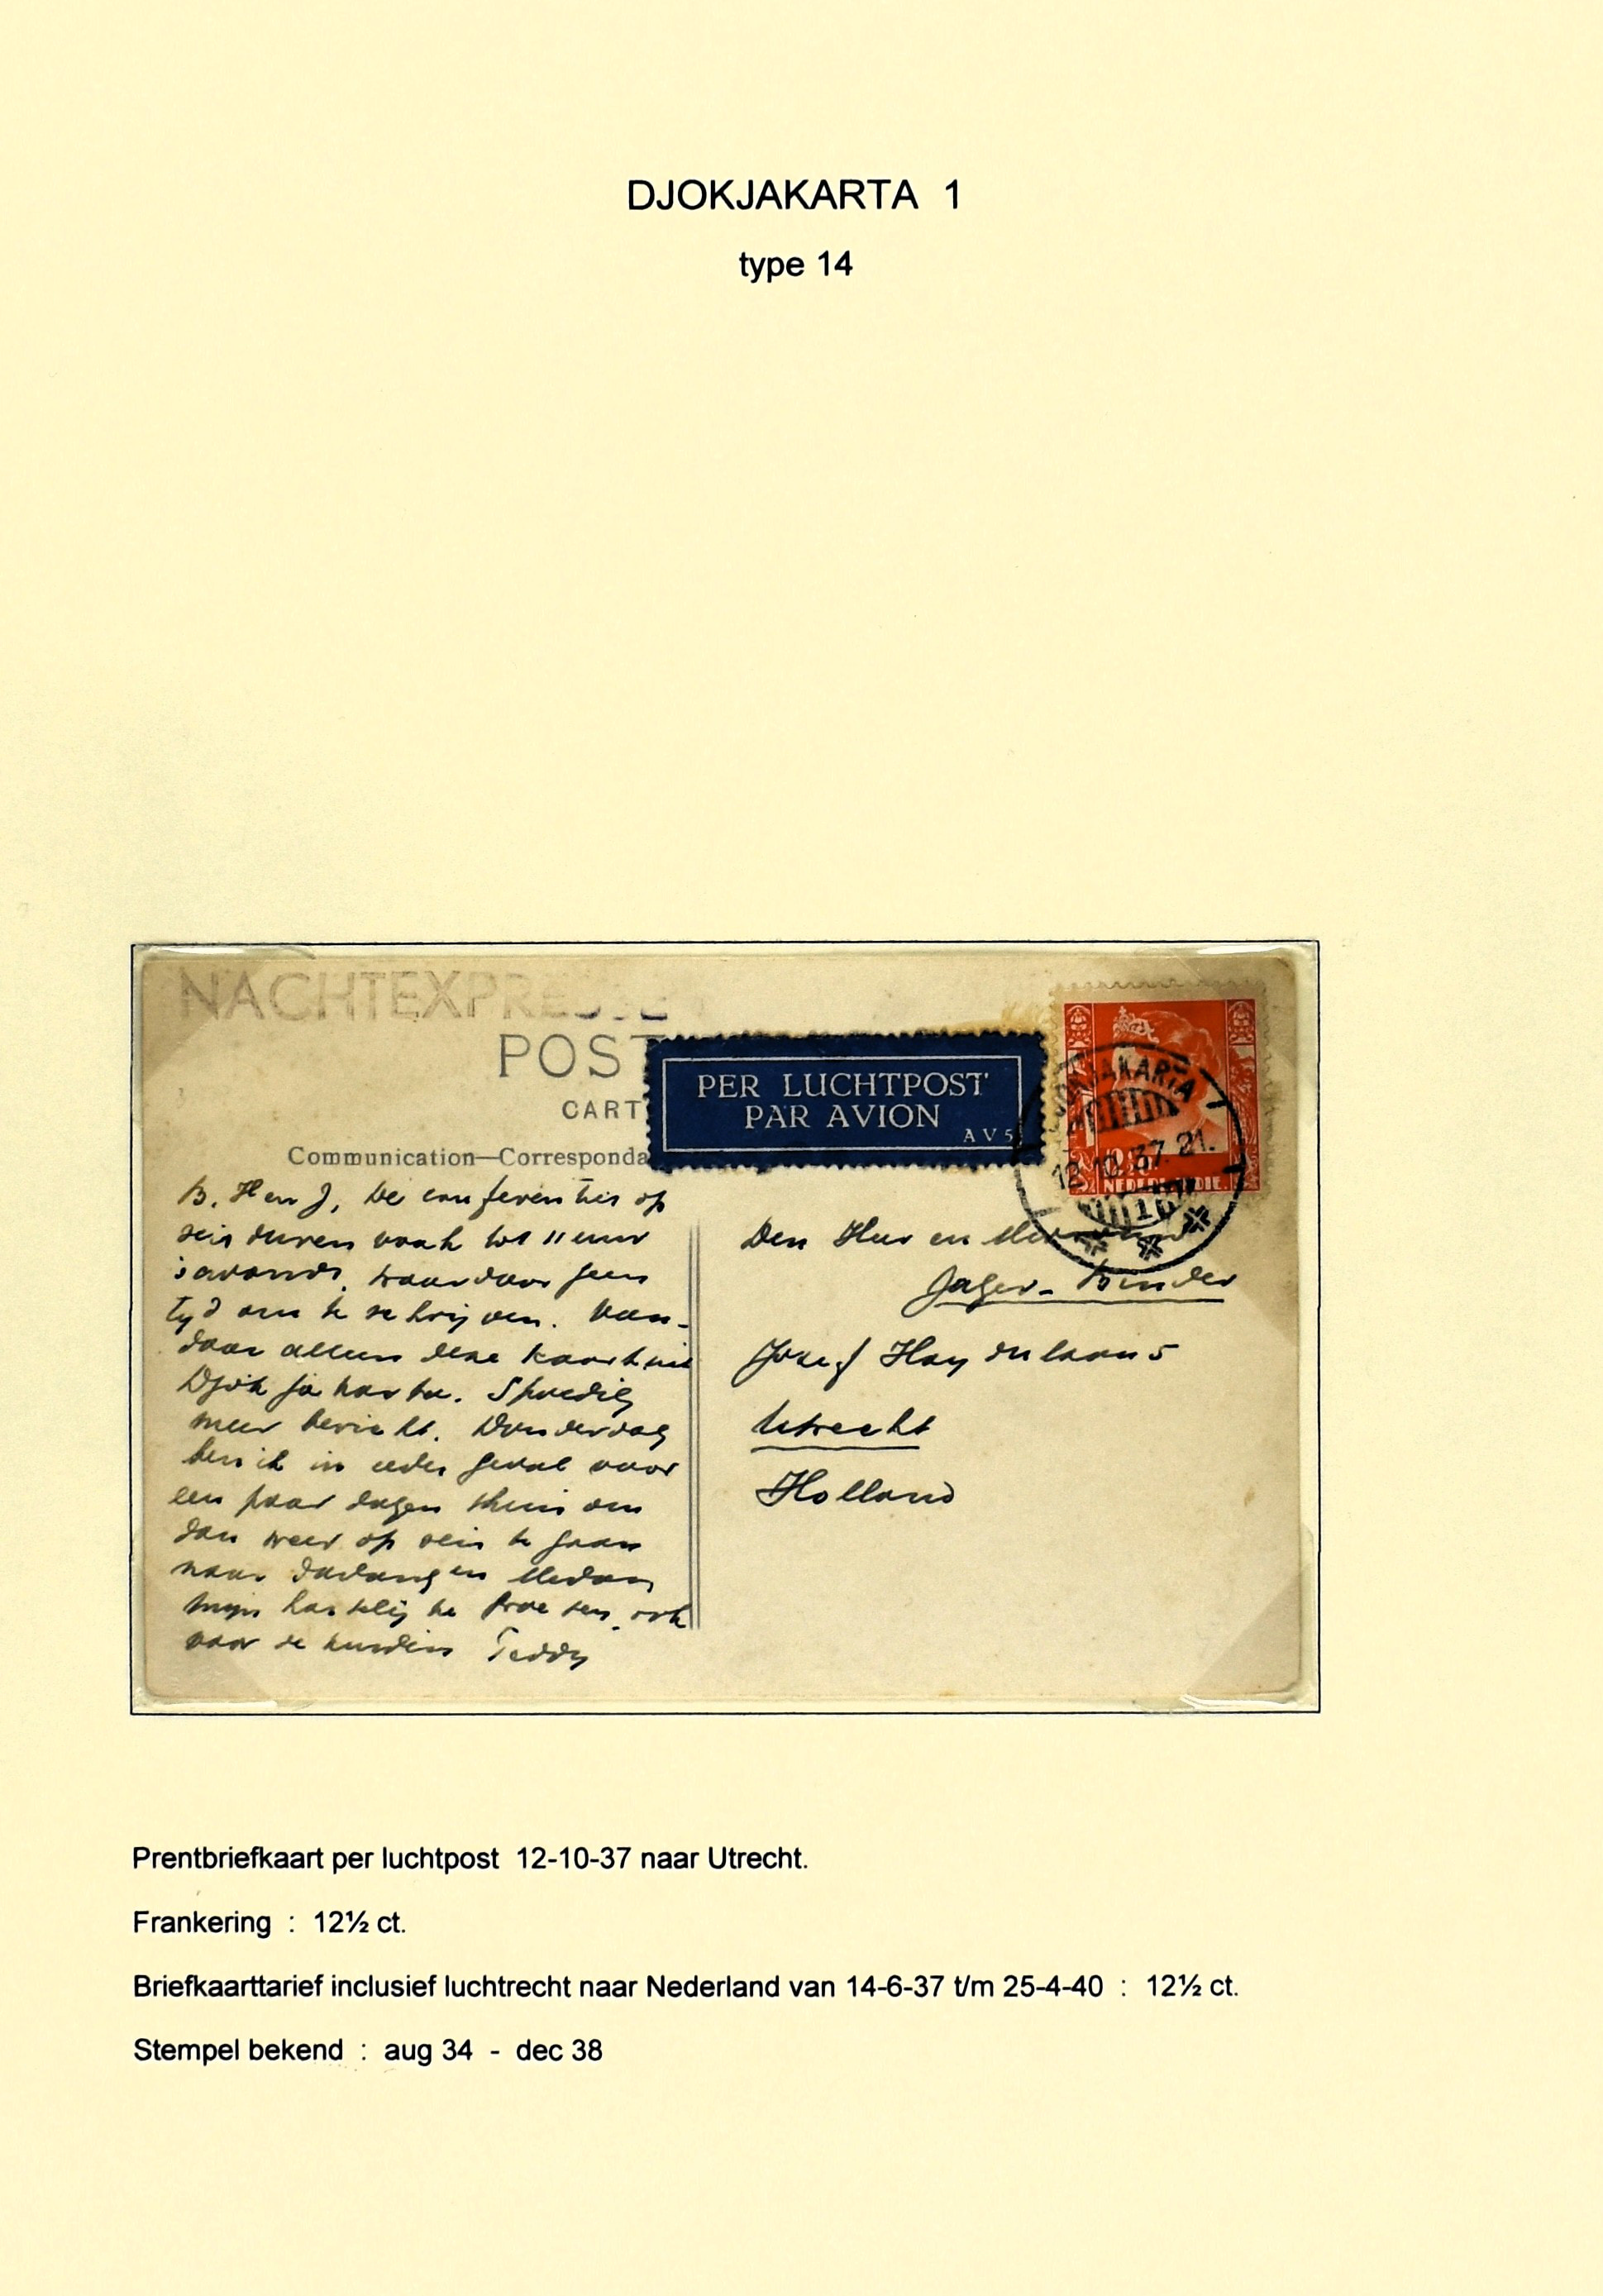 DJOKJAKARTA 1
type 14
NACHTEXPRESSE
POST
CART
Communication—Corresponda
PER LUCHTPOST
PAR AVION
AV5
DJOKJAKARTA
12.10.37.21.
1
NED. INDIE.
B. H en J, De conferenties op
reis duren vaak tot 11 uur
's avonds, waardoor geen
tyd om te schrijven. Van-
daar alleen deze kaart uit
Djokjakarta. Spoedig
meer bericht. Donderdag
ben ik in ieder geval voor
een paar dagen thuis om
dan weer op reis te gaan
naar Padang en Medan
Mijn hartelijke groeten, ook
voor de kinders Teddy
Den Heer en Mevrouw
Jager-Binder
Josef Haydnlaan 5
Utrecht
Holland
Prentbriefkaart per luchtpost 12-10-37 naar Utrecht.
Frankering : 12½ ct.
Briefkaarttarief inclusief luchtrecht naar Nederland van 14-6-37 t/m 25-4-40 : 12½ ct.
Stempel bekend : aug 34 - dec 38